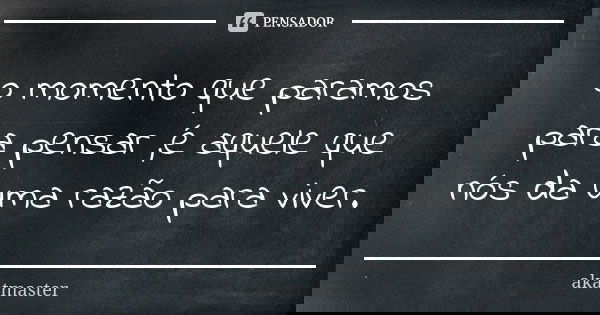 PENSADOR
o momento que paramos
para pensar ,é aquele que
nós da uma razão para viver.
akatmaster